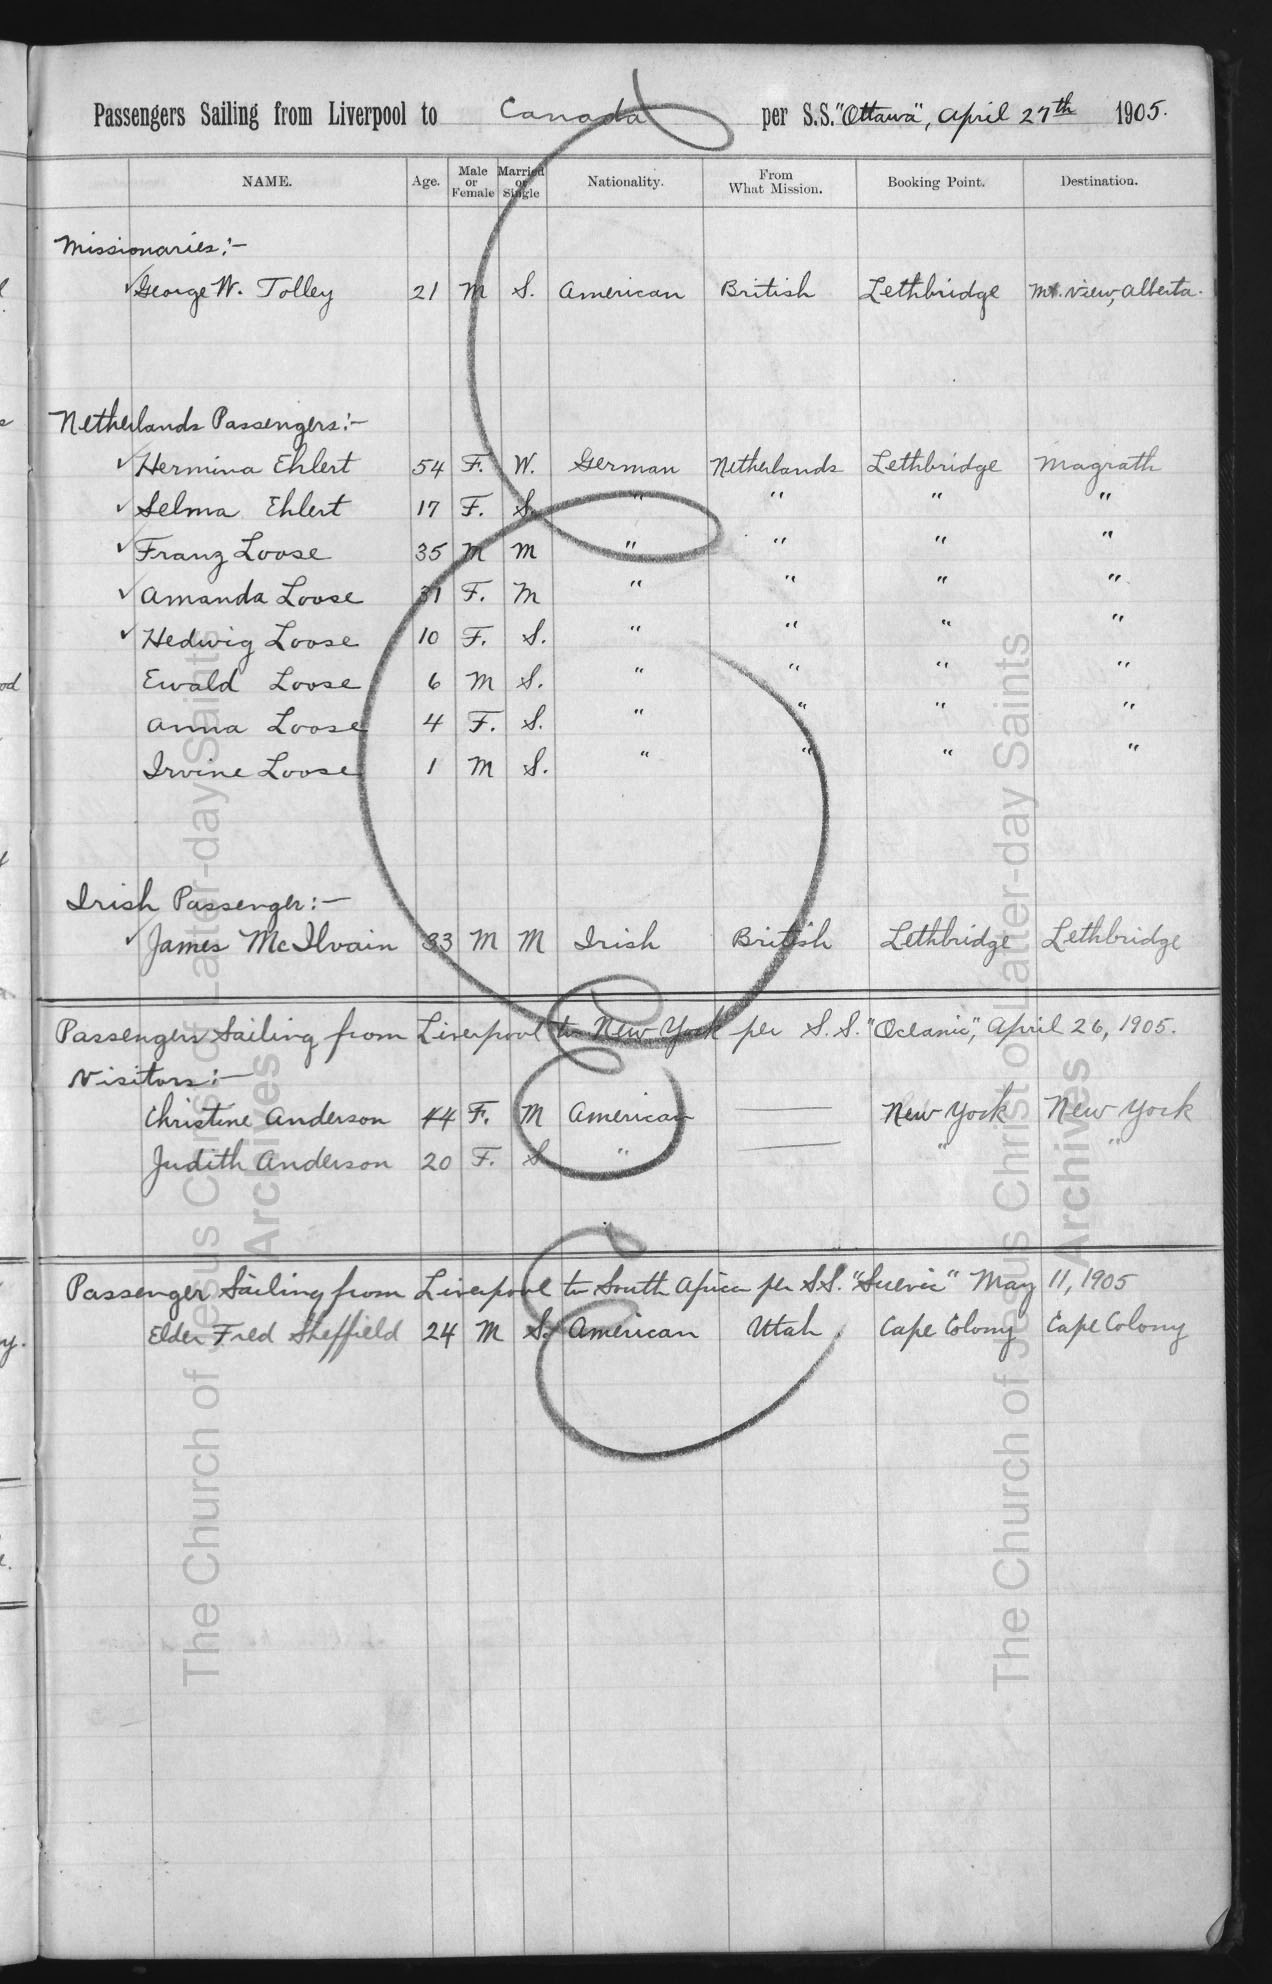 Passengers Sailing from Liverpool to Canada per S.S. "Ottawa", April 27th 1905.
NAME. Age. Male or Female Married or Single Nationality. From What Mission. Booking Point. Destination.
Missionaries:-
✓ George W. Tolley 21 M S. American British Lethbridge Mt. View, Alberta.
Netherlands Passengers:-
✓ Hermina Ehlert 54 F. W. German Netherlands Lethbridge Magrath
✓ Selma Ehlert 17 F. S. " " " "
✓ Franz Loose 35 M M " " " "
✓ Amanda Loose 31 F. M " " " "
✓ Hedwig Loose 10 F. S. " " " "
Ewald Loose 6 M S. " " " "
Anna Loose 4 F. S. " " " "
Irvine Loose 1 M S. " " " "
Irish Passenger:-
✓ James McIlvain 33 M M Irish British Lethbridge Lethbridge
Passengers Sailing from Liverpool to New York per S. S. "Oceanic", April 26, 1905.
Visitors:-
Christine Anderson 44 F. M American — New York New York
Judith Anderson 20 F. S " — " "
Passenger Sailing from Liverpool to South Africa per S.S. "Suevic" May 11, 1905
Elder Fred Sheffield 24 M S. American Utah Cape Colony Cape Colony
The Church of Jesus Christ of Latter-day Saints
Archives
The Church of Jesus Christ of Latter-day Saints
Archives